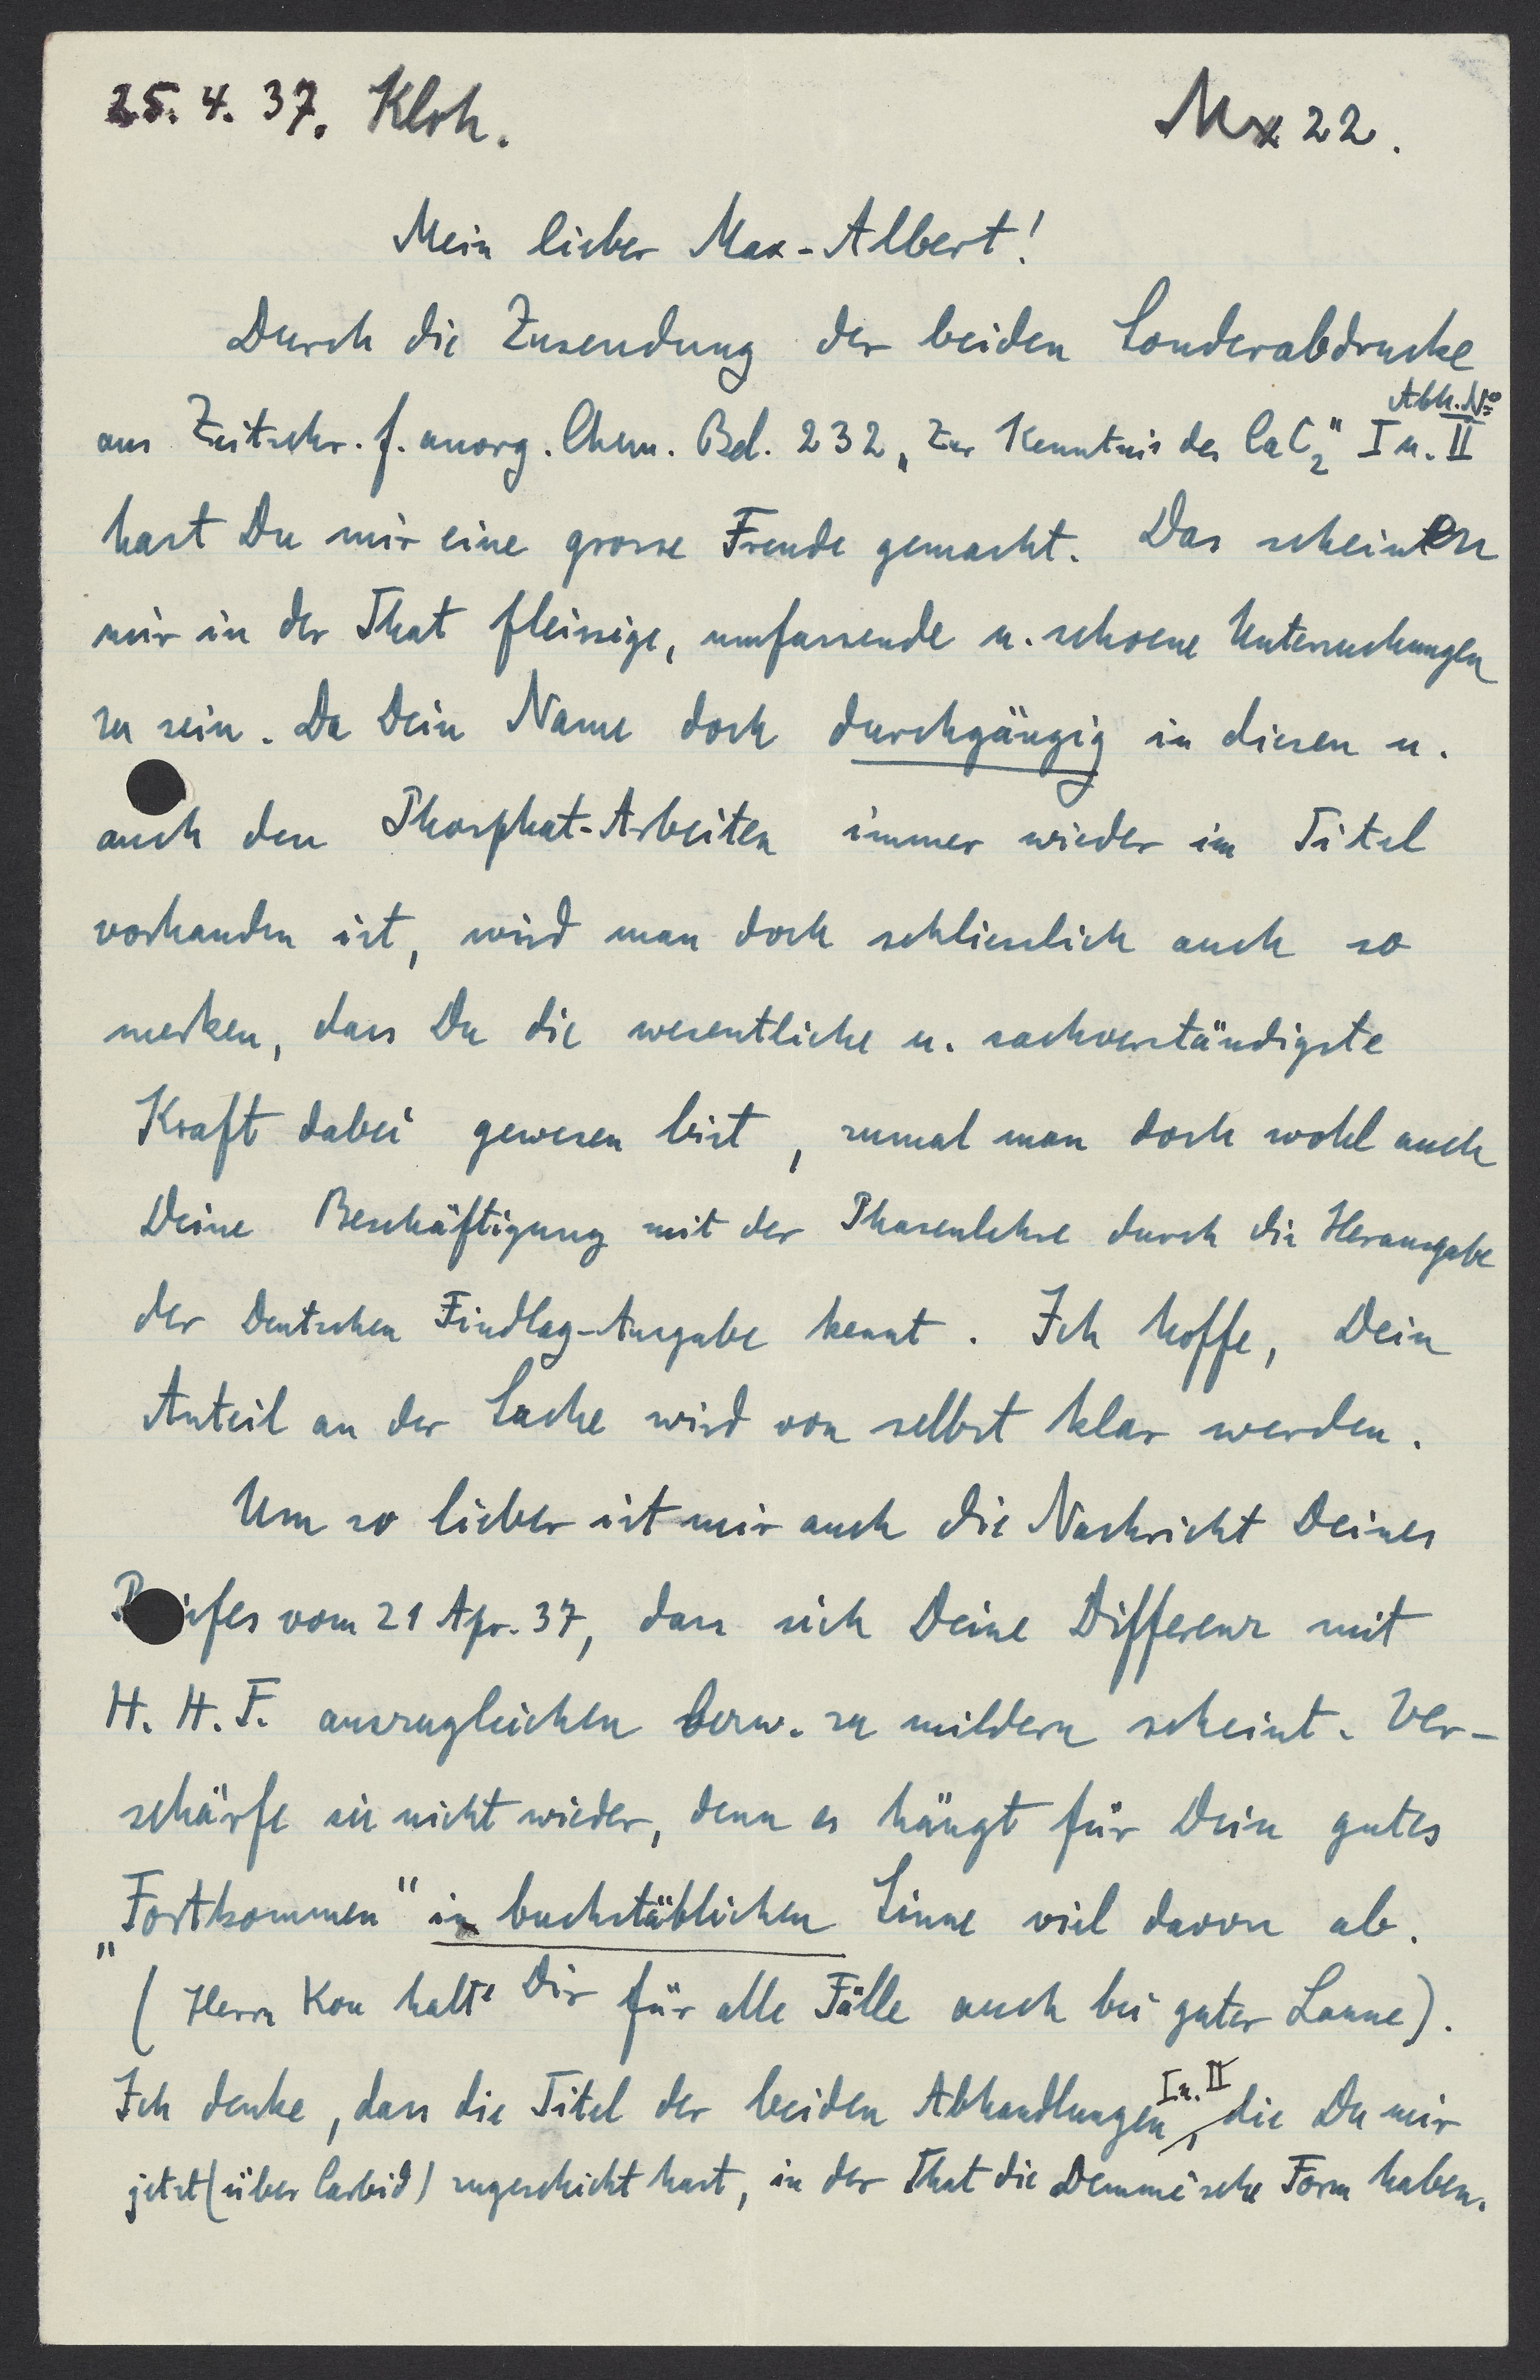 25. 4. 37. Klsh.
Mx 22.
Mein lieber Max-Albert!
Durch die Zusendung der beiden Sonderabdrucke
aus Zeitschr. f. anorg. Chem. Bd. 232 „Zur Kenntnis des CaC₂" Abh. Nº I u. II
hast Du mir eine grosse Freude gemacht. Das scheinen
mir in der That fleissige, umfassende u. schoene Untersuchungen
zu sein. Da Dein Name doch durchgängig in diesen u.
auch den Phosphat-Arbeiten immer wieder im Titel
vorhanden ist, wird man doch schliesslich auch so
merken, dass Du die wesentliche u. sachverständigste
Kraft dabei gewesen bist, zumal man doch wohl auch
Deine Beschäftigung mit der Phasenlehre durch die Herausgabe
der Deutschen Findlay-Ausgabe kennt. Ich hoffe, Dein
Anteil an der Sache wird von selbst klar werden.
Um so lieber ist mir auch die Nachricht Deines
Briefes vom 21 Apr. 37, dass sich Deine Differenz mit
H. H. F. auszugleichen bezw. zu mildern scheint. Ver-
schärfe sie nicht wieder, denn es hängt für Dein gutes
„Fortkommen" in buchstäblichen Sinne viel davon ab.
(Herrn Kou halte Dir für alle Fälle auch bei guter Laune).
Ich denke, dass die Titel der beiden Abhandlungen I u. II, die Du mir
jetzt (über Carbid) zugeschickt hast, in der That die Demme'sche Form haben.